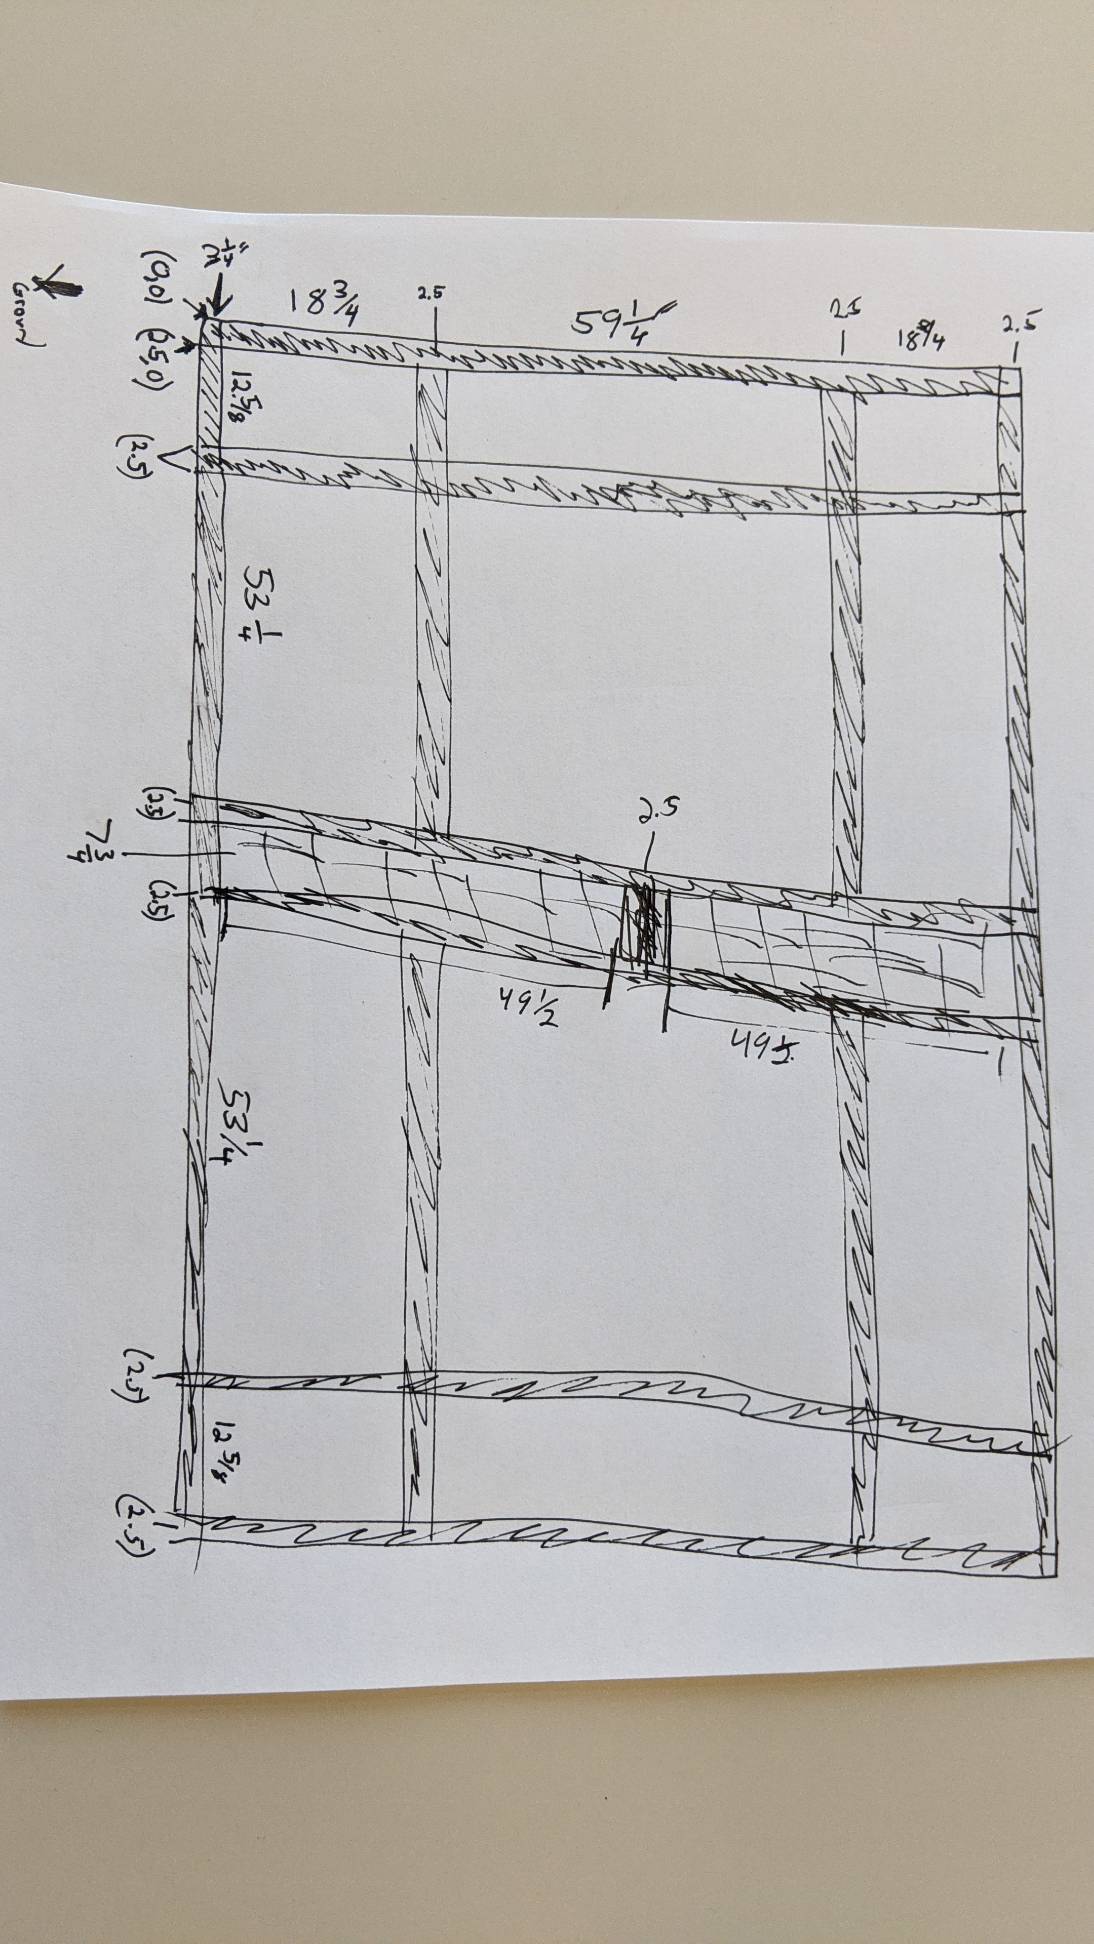 2.5
18 3/4
2.5
59 1/4
2.5
18 3/4
2.5
49 1/2
12 5/8
53 1/4
53 1/4
12 5/8
(0,0)
(2.5,0)
(2.5)
(2.5)
(2.5)
(2.5)
(2.5)
7 3/4
Ground